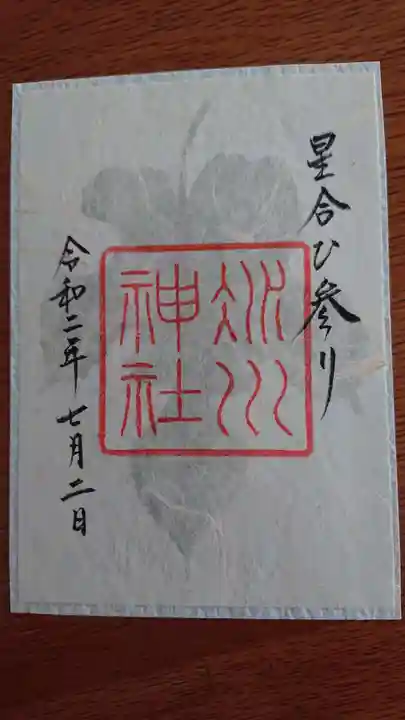 星合ひ参り
氷川
神社
令和二年 七月二日